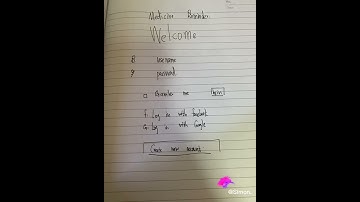 Medicine Reminder
Welcome
username
password
Remember me Login
f. Log in with facebook
G. Log in with Google
Create new account
@Simon.